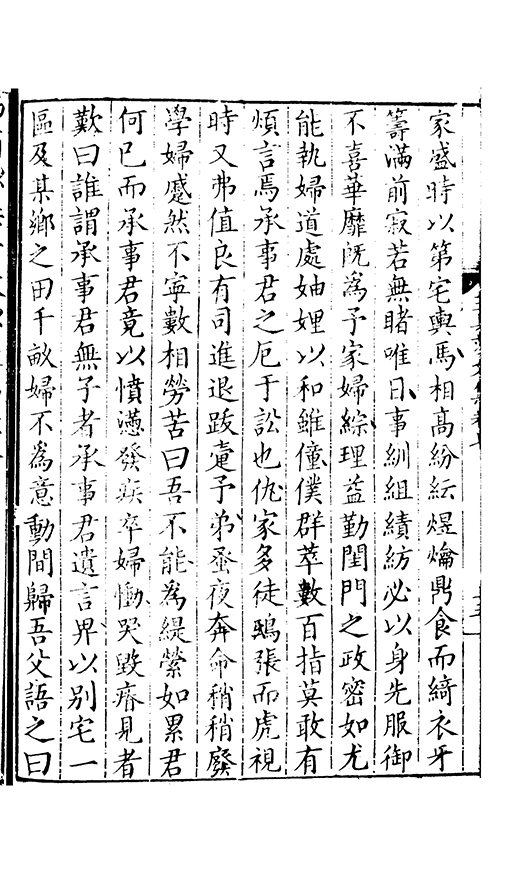 家盛時以第宅輿馬相高紛紜熀爚鼎食而綺衣牙
籌滿前寂若無睹唯日事紃組績紡必以身先服御
不喜華靡既為予家婦綜理益勤閨門之政密如尤
能執婦道處妯娌以和雖僮僕群萃數百指莫敢有
煩言焉承事君之厄于訟也仇家多徒鴟張而虎視
時又弗值良有司進退跋疐予弟蚤夜奔命稍稍廢
學婦蹙然不寧數相勞苦曰吾不能為緹縈如累君
何已而承事君竟以憤懣發疾卒婦慟哭毀瘠見者
歎曰誰謂承事君無子者承事君遺言畀以別宅一
區及某鄉之田千畝婦不為意動間歸吾父語之曰